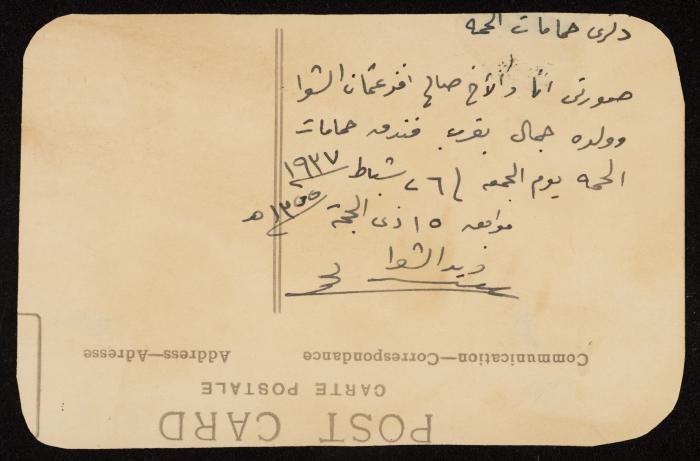 ذكرى حمامات الحمه
صورتي انا والأخ صالح افندي عثمان الشوا
وولده جمال بقرب فندق حمامات
الحمه يوم الجمعه ٢٦ شباط ١٩٣٧
موافق ١٥ ذي الحجة ١٣٥٥ هـ
الشوا
Communication—Correspondance
Address—Adresse
CARTE POSTALE
POST CARD